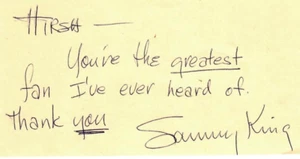 HIRSH —
You're the greatest
fan I've ever heard of.
Thank you
Sammy King